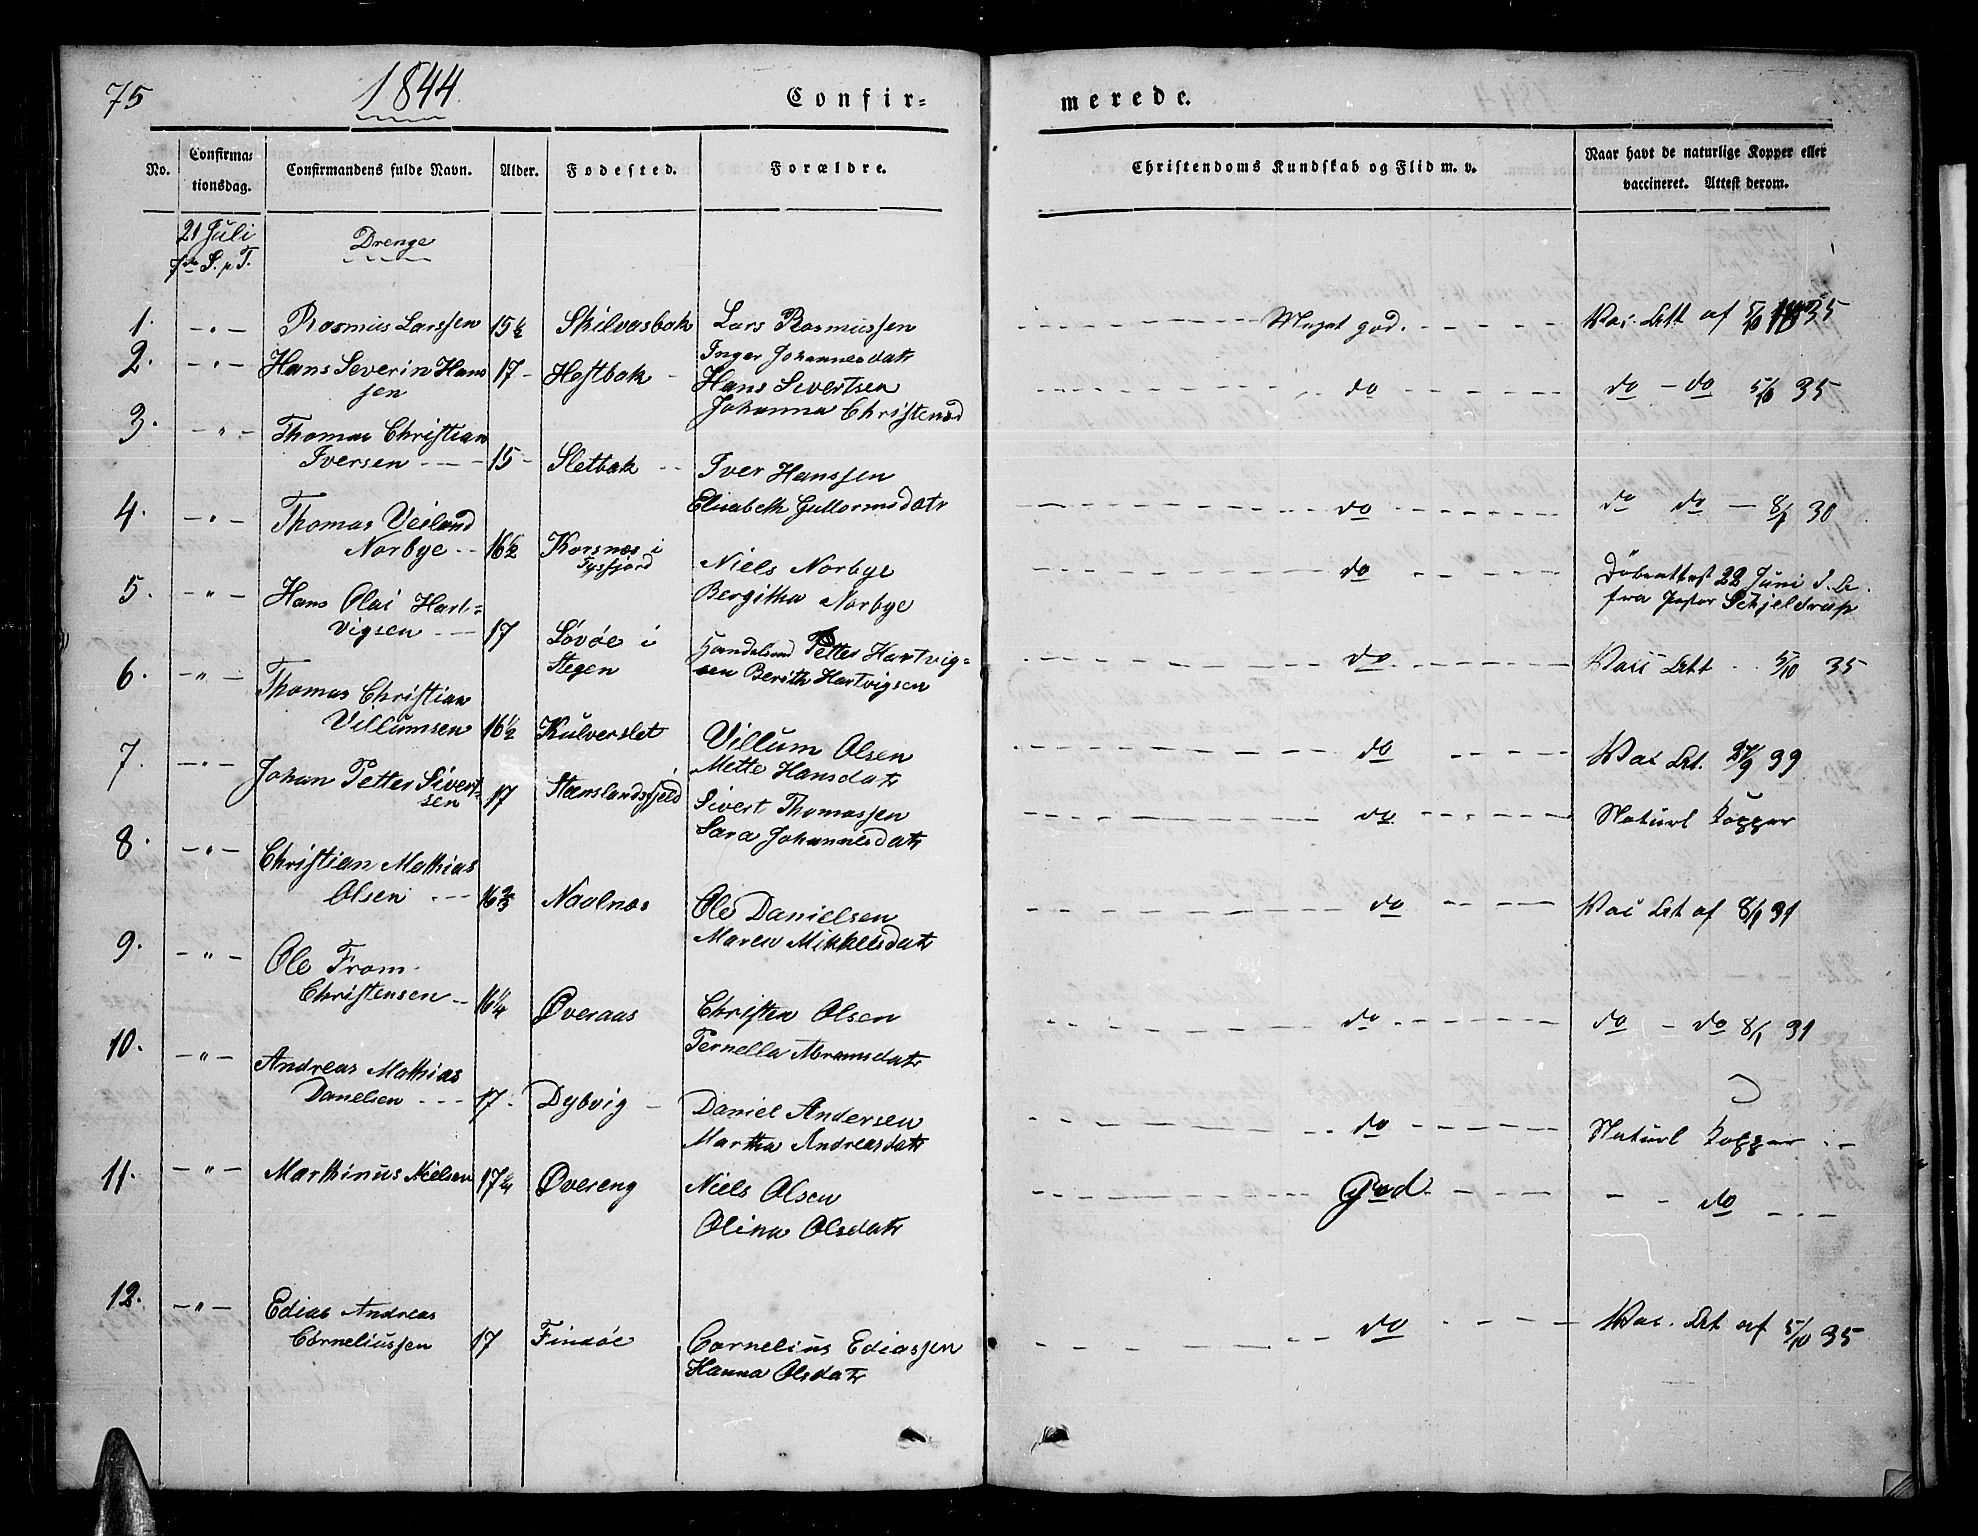 75
1844
Confir=
merede.
No.
Confirma=
tionsdag.
Confirmandens fulde Navn.
Alder.
Fødested.
Forældre.
Christendoms Kundskab og Flid m. v.
Naar havt de naturlige Kopper eller
vaccineret. Attest derom.
21 Juli
7de S. p T.
Drenge
1. -"- Rasmus Larssen 15½ Skilvasbak Lars Rasmussen Meget god. Vac. Att af 5/10 1835
Inger Johannesdatr
2. -"- Hans Severin Hans 17 - Hestbak - Hans Sivertsen do do - do 5/10 35
sen Johanna Christensd
3. -"- Thomas Christian
Iversen - - - 15 - Sletbak - - Iver Hanssen
Elisabeth Guttormsdatr do do do - 8/1 30
4. -"- Thomas Veiland
Norbye - - 16½ Korsnæs i
Tysfjord Niels Norbye do Döbeattest 22 Juni
Bergitha Norbye fra Pastor Schjeldrup
5. -"- Hans Olai Hart=
vigsen - - - 17 Lövöe i
Stegen Handelsmd Petter Hartvig= do Vacc Att - - 5/10 35
sen Berith Hartvigsen
6. -"- Thomas Christian
Villumsen 16½ Kulverslet Villum Olsen do Vac At. 27/9 39
Mette Hansdatr
7. -"- Johan Petter Sivert=
sen 17 Stenslandsfjeld Sivert Thomassen do Naturl Kopper
Sara Johannesdatr
8. -"- Christian Mathias
Olsen - - - 16⅔ Naalnæs Ole Danielsen do Vac Att af 8/1 31
Maren Mikkelsdatr
9. -"- Ole From
Christensen - 16¼ Øveraas Christen Olsen do do - do 8/1 31
Pernella Abramsdatr
10. -"- Andreas Mathias
Danelsen - - - 17. Dybvig - Daniel Andersen do Naturl Kopper - -
Martha Andreasdatr
11. -"- Marthinus Nielsen 17¼ Øvereng Niels Olsen God - - do - - -
Olina Olsdatr
12. -"- Edias Andreas
Corneliussen 17 Finnöe Cornelius Ediassen do Vac. Att af 5/10 35
Hanna Olsdatr